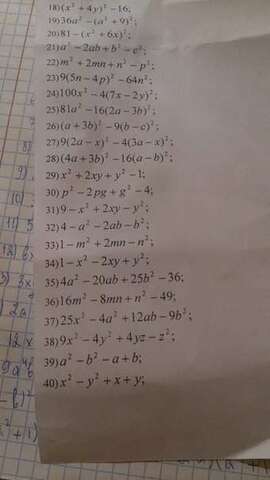 18)(x² + 4y)² − 16;
19)36a² − (a² + 9)²;
20)81 − (x² + 6x)²;
21)a² − 2ab + b² − c²;
22)m² + 2mn + n² − p²;
23)9(5n − 4p)² − 64n²;
24)100x² − 4(7x − 2y)²;
25)81a² − 16(2a − 3b)²;
26)(a + 3b)² − 9(b − c)²;
27)9(2a − x)² − 4(3a − x)²;
28)(4a + 3b)² − 16(a − b)²;
29)x² + 2xy + y² − 1;
30)p² − 2pg + g² − 4;
31)9 − x² + 2xy − y²;
32)4 − a² − 2ab − b²;
33)1 − m² + 2mn − n²;
34)1 − x² − 2xy + y²;
35)4a² − 20ab + 25b² − 36;
36)16m² − 8mn + n² − 49;
37)25x² − 4a² + 12ab − 9b²;
38)9x² − 4y² + 4yz − z²;
39)a² − b² − a + b;
40)x² − y² + x + y;